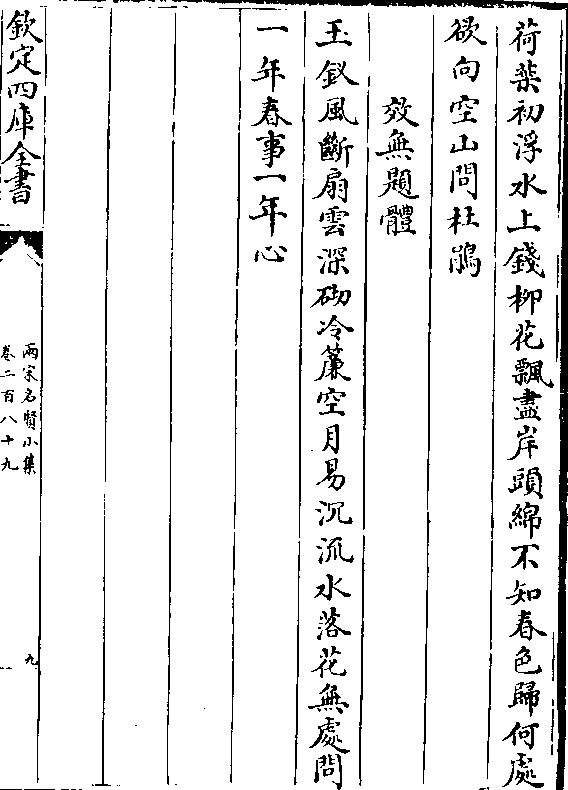 荷葉初浮水上錢柳花飄盡岸頭綿不知春色歸何處
欲向空山問杜鵑
效無題體
玉釵風斷扇雲深砌冷簾空月易沉流水落花無處問
一年春事一年心
欽定四庫全書
兩宋名賢小集
卷二百八十九
九